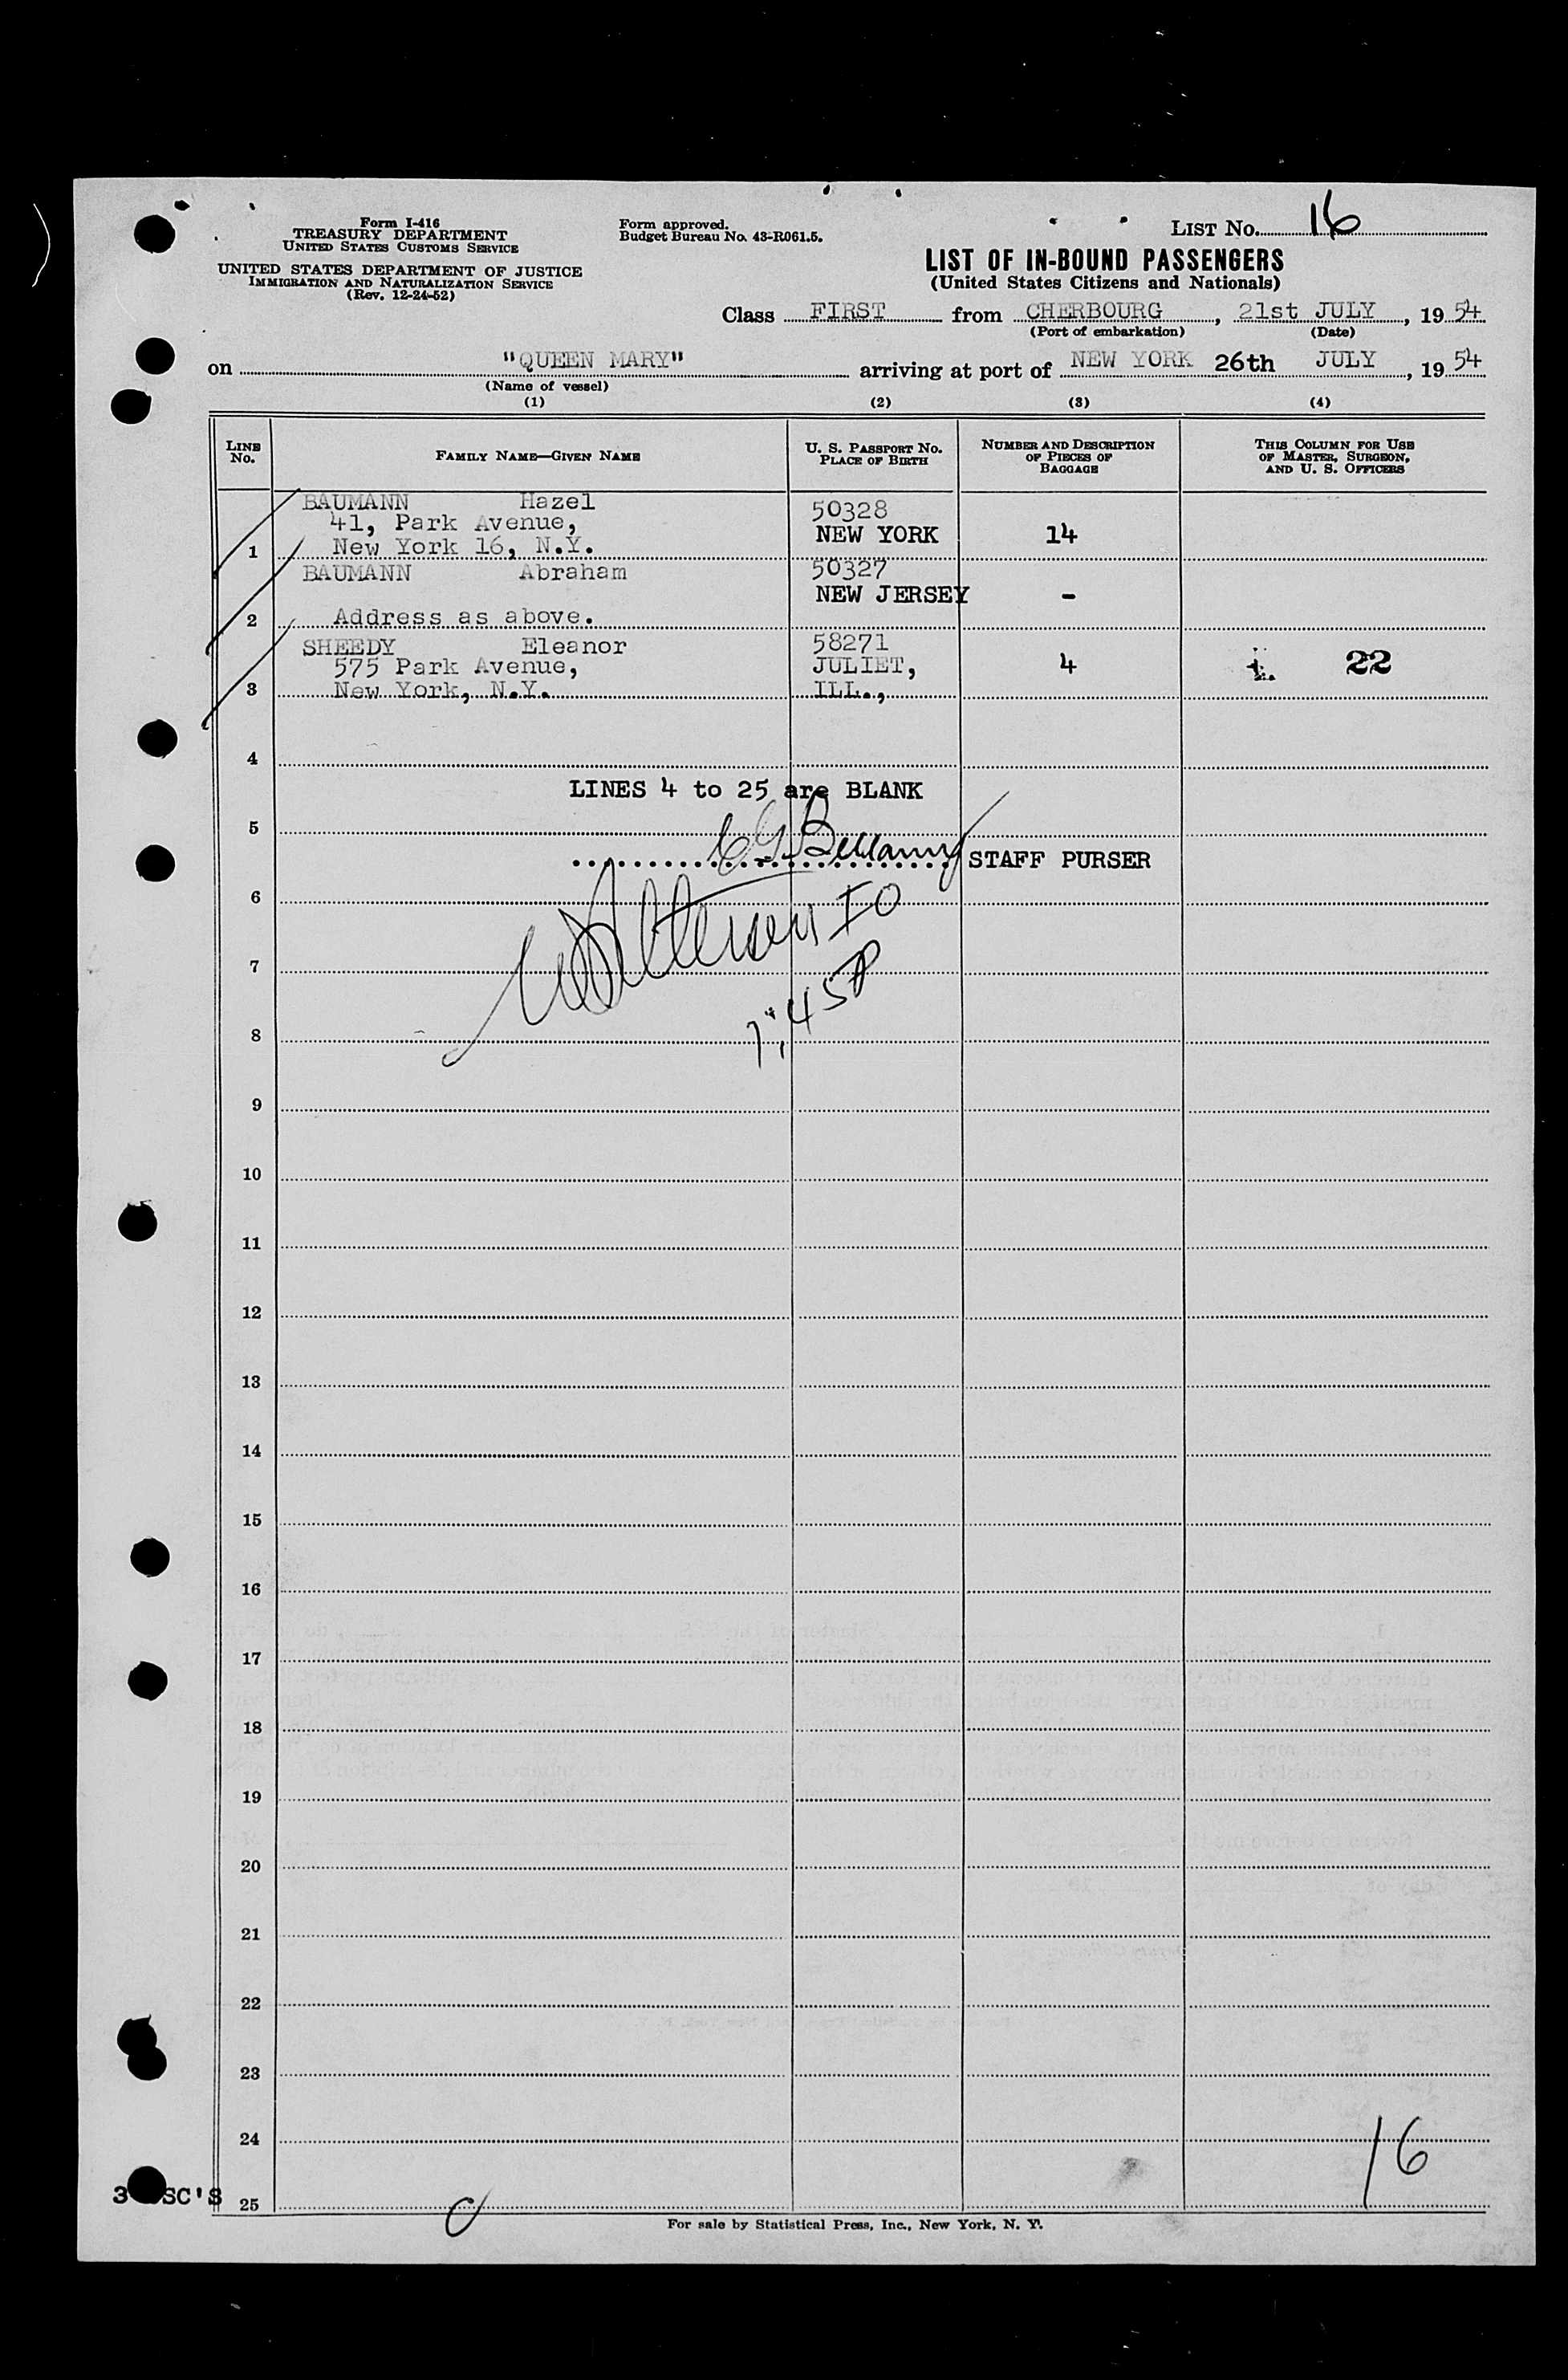 Form I-416
TREASURY DEPARTMENT
UNITED STATES CUSTOMS SERVICE
UNITED STATES DEPARTMENT OF JUSTICE
IMMIGRATION AND NATURALIZATION SERVICE
(Rev. 12-24-52)
Form approved.
Budget Bureau No. 43-R061.5.
LIST No. 16
LIST OF IN-BOUND PASSENGERS
(United States Citizens and Nationals)
Class FIRST from CHERBOURG, 21st JULY, 19 54
(Port of embarkation) (Date)
on "QUEEN MARY" arriving at port of NEW YORK 26th JULY, 19 54
(Name of vessel)
(1) (2) (3) (4)
LINE No. FAMILY NAME—GIVEN NAME U. S. PASSPORT No. PLACE OF BIRTH NUMBER AND DESCRIPTION OF PIECES OF BAGGAGE THIS COLUMN FOR USE OF MASTER, SURGEON, AND U. S. OFFICERS
BAUMANN Hazel 50328
41, Park Avenue, NEW YORK 14
1 New York 16, N.Y.
BAUMANN Abraham 50327
NEW JERSEY -
2 Address as above.
SHEEDY Eleanor 58271
575 Park Avenue, JULIET, 4 22
3 New York, N.Y. ILL.,
4
LINES 4 to 25 are BLANK
5
C G Bellamy STAFF PURSER
6
IO
7
8
9
10
11
12
13
14
15
16
17
18
19
20
21
22
23
24
16
3 SC'S
25
For sale by Statistical Press, Inc., New York, N. Y.